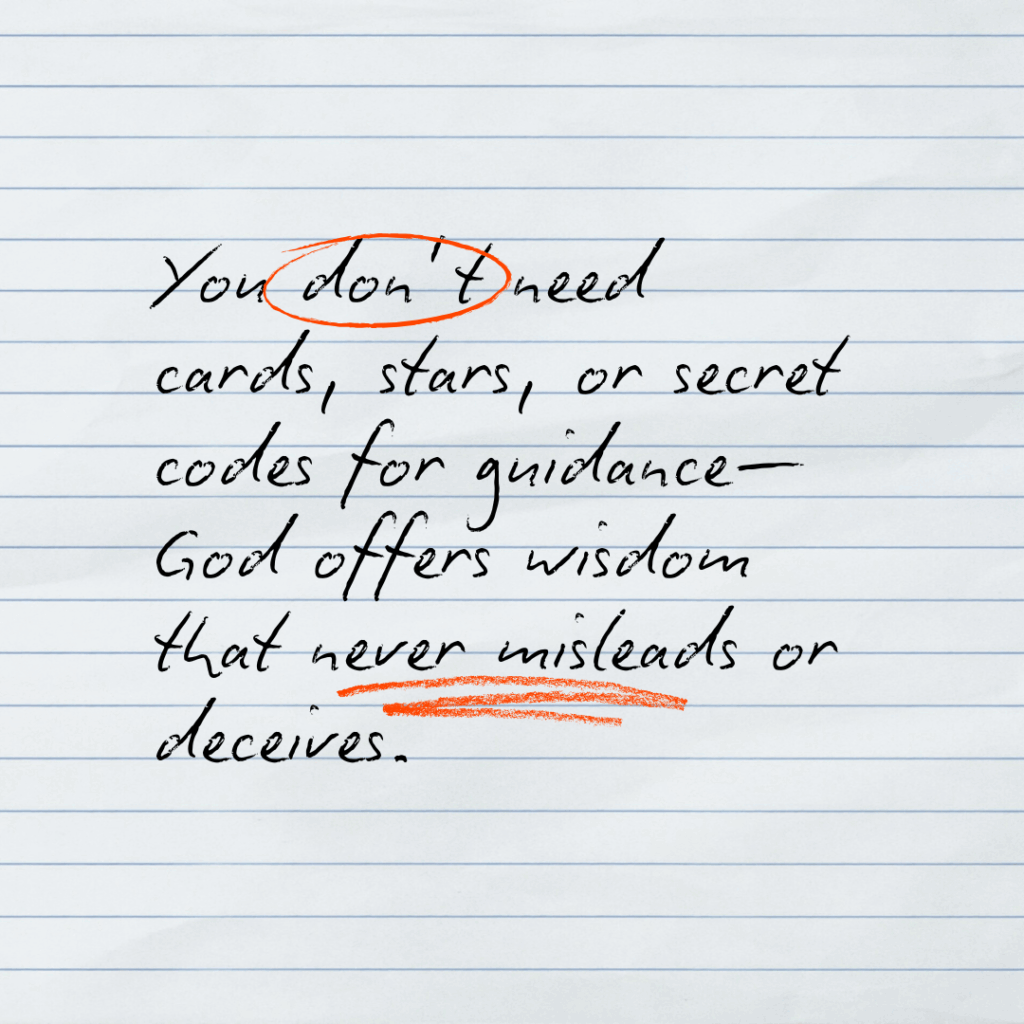 You don't need
cards, stars, or secret
codes for guidance—
God offers wisdom
that never misleads or
deceives.